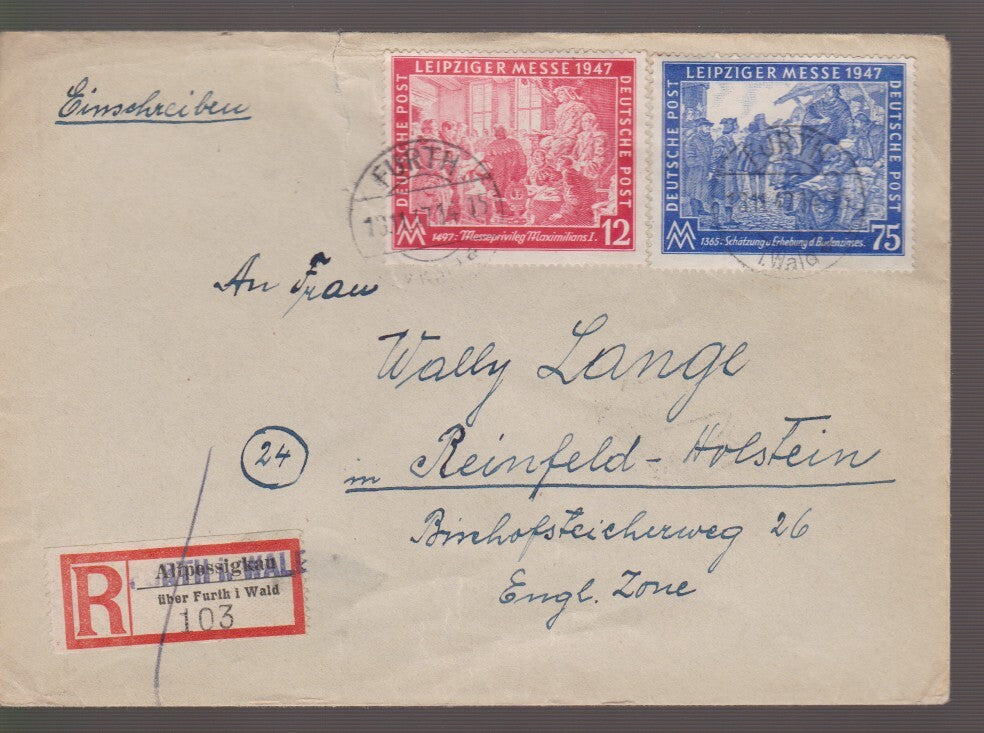 Einschreiben
LEIPZIGER MESSE 1947
DEUTSCHE POST
DEUTSCHE POST
1497: Messeprivileg Maximilians I. 12
LEIPZIGER MESSE 1947
DEUTSCHE POST
DEUTSCHE POST
1365: Schätzung u Erhebung d Budenzinses. 75
FURTH
i. Wald
An Frau
Wally Lange
24
m Reinfeld-Holstein
Bischofsteicherweg 26
Engl. Zone
R
über Furth i Wald
103